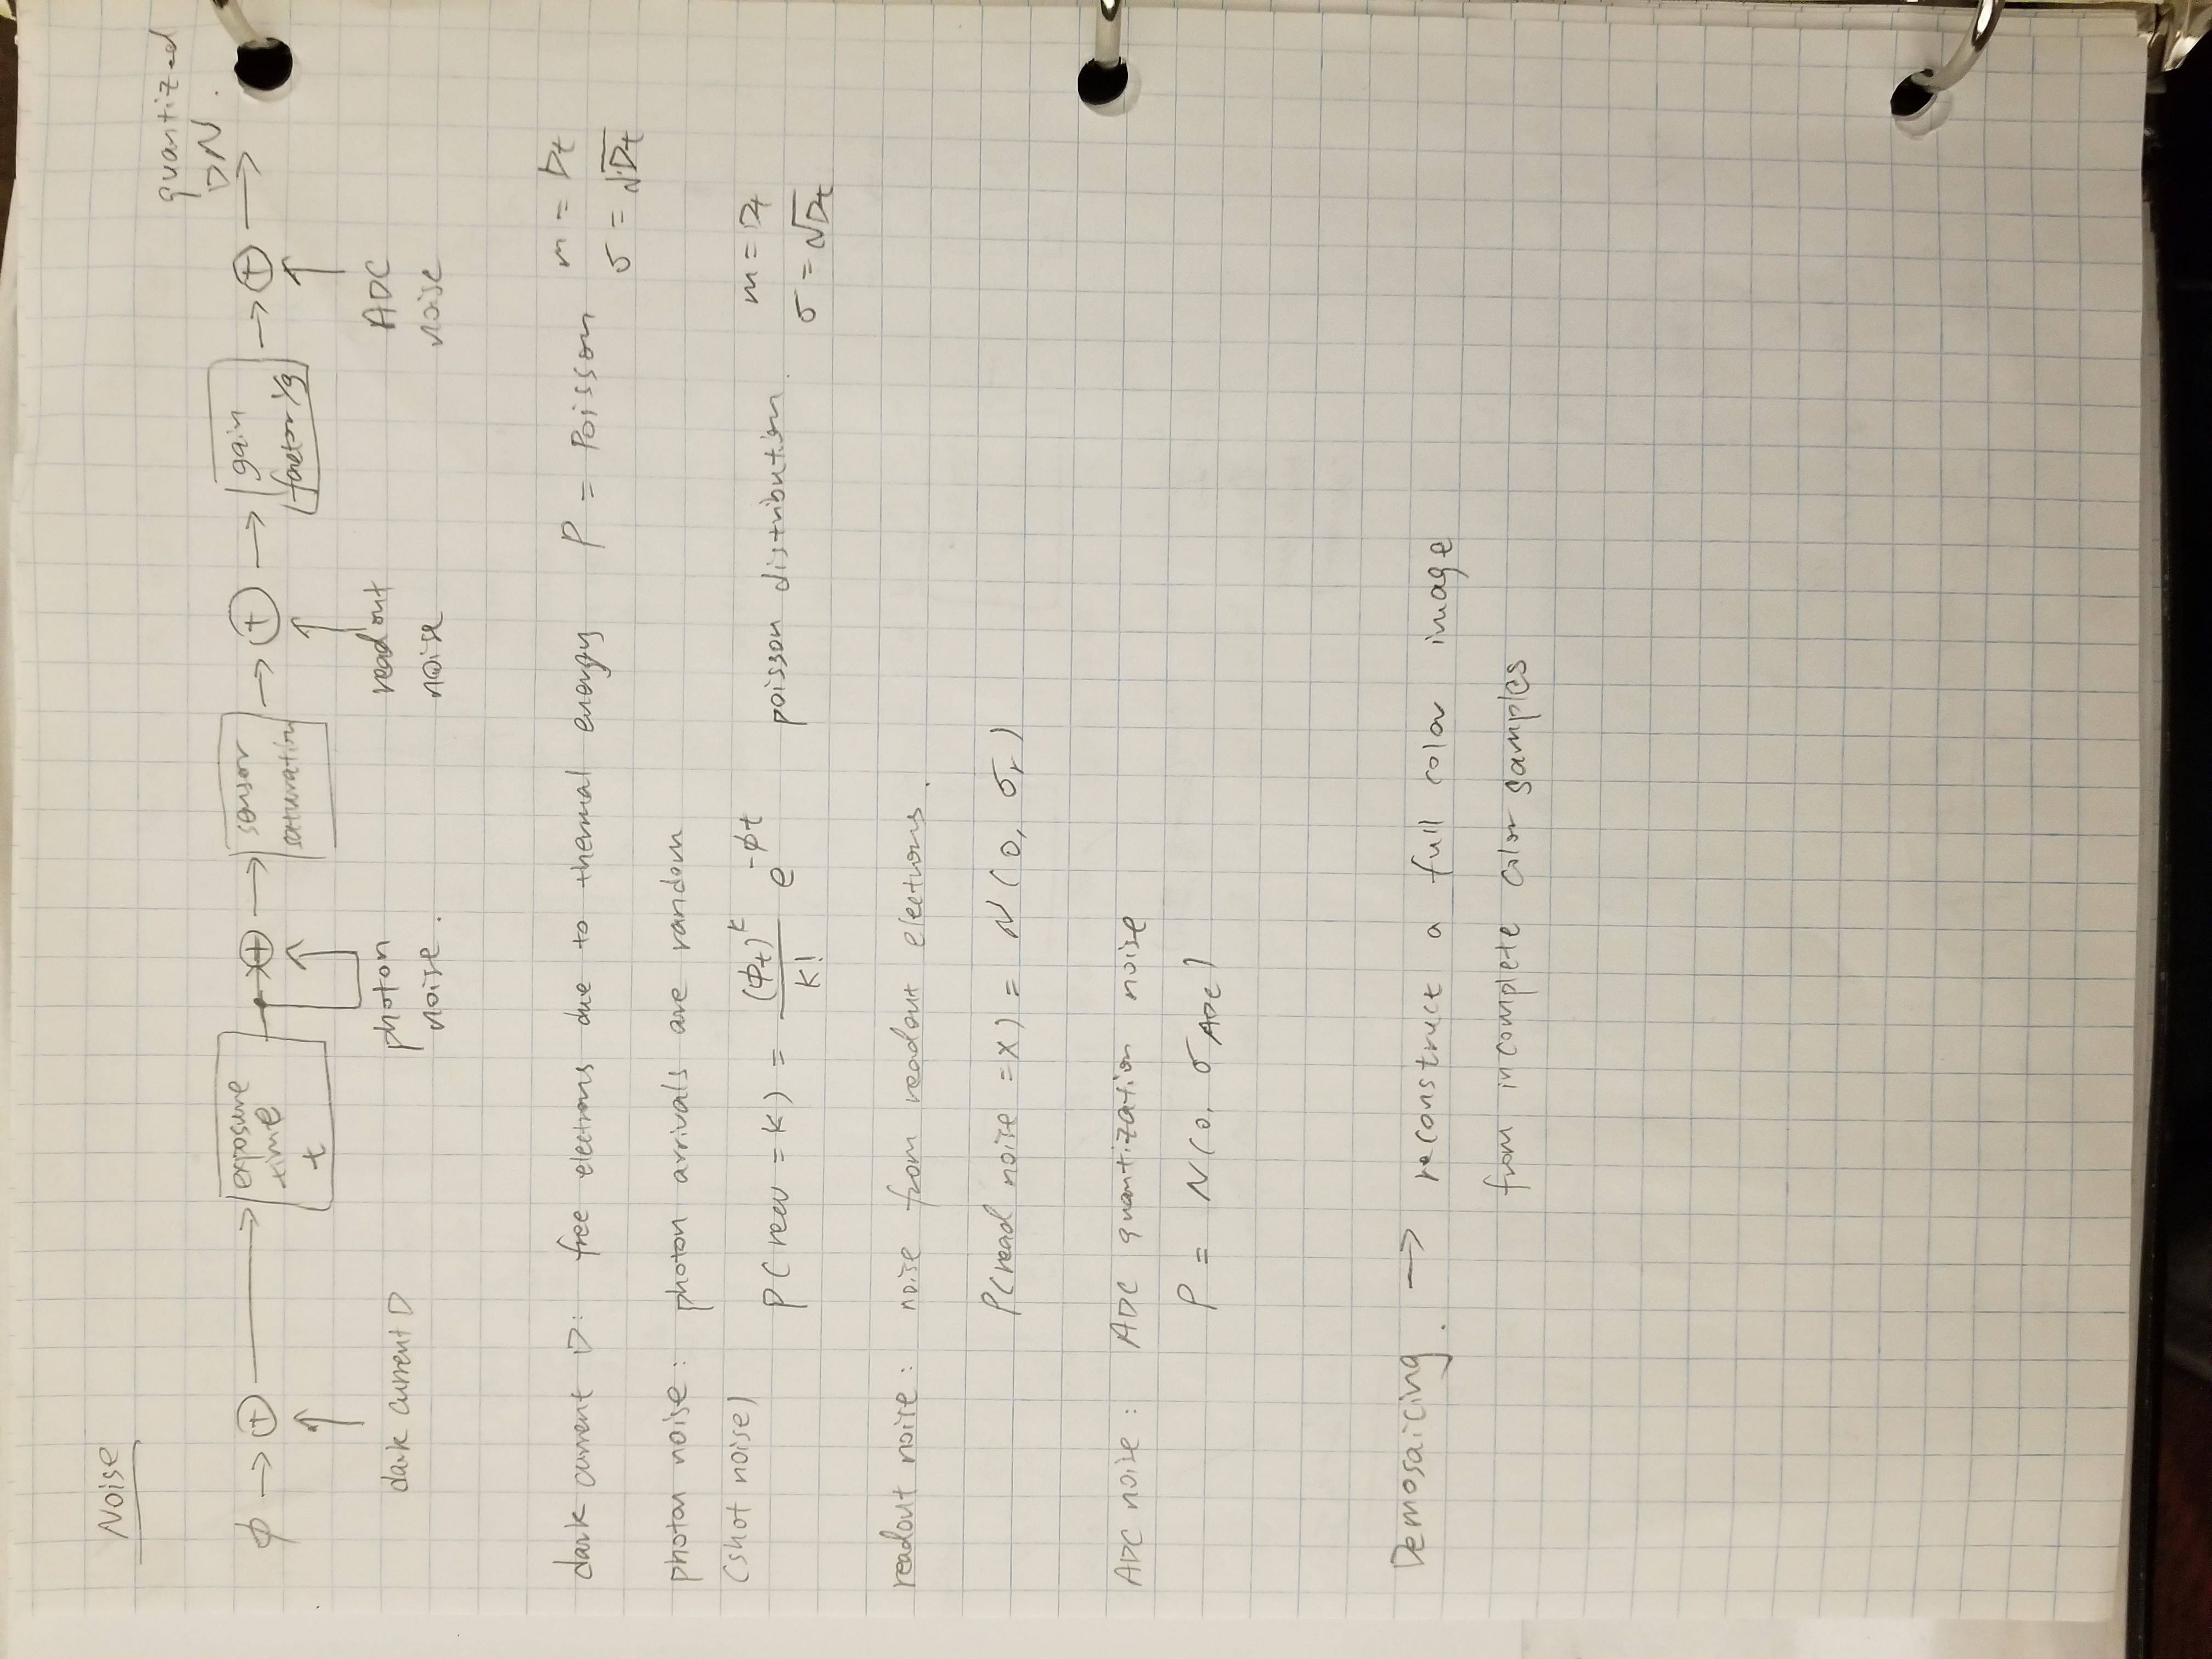 Noise
quantized
DN.
ϕ → ⊕ → exposure time t → ⊕ → sensor saturation → ⊕ → gain factor 1/g → ⊕ →
dark current D
photon noise.
readout noise
ADC noise
dark current D: free electrons due to thermal energy P = Poisson m = Dt
σ = √Dt
photon noise: photon arrivals are random
(shot noise)
P( = k) = (ϕt)^k / k! e^-ϕt poisson distribution. m = Dt
σ = √Dt
readout noise: noise from readout electrons.
P(read noise = x) = N(0, σr)
ADC noise: ADC quantization noise
P = N(0, σADC)
Demosaicing. → reconstruct a full color image
from incomplete color samples